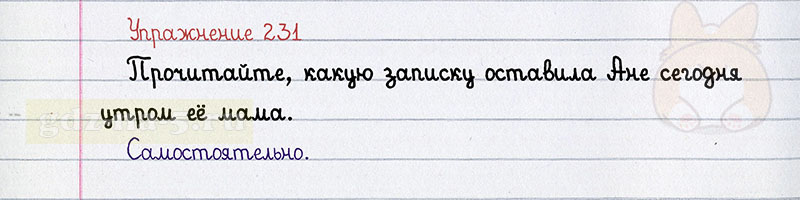 Упражнение 231
Прочитайте, какую записку оставила Ане сегодня
утром её мама.
Самостоятельно.